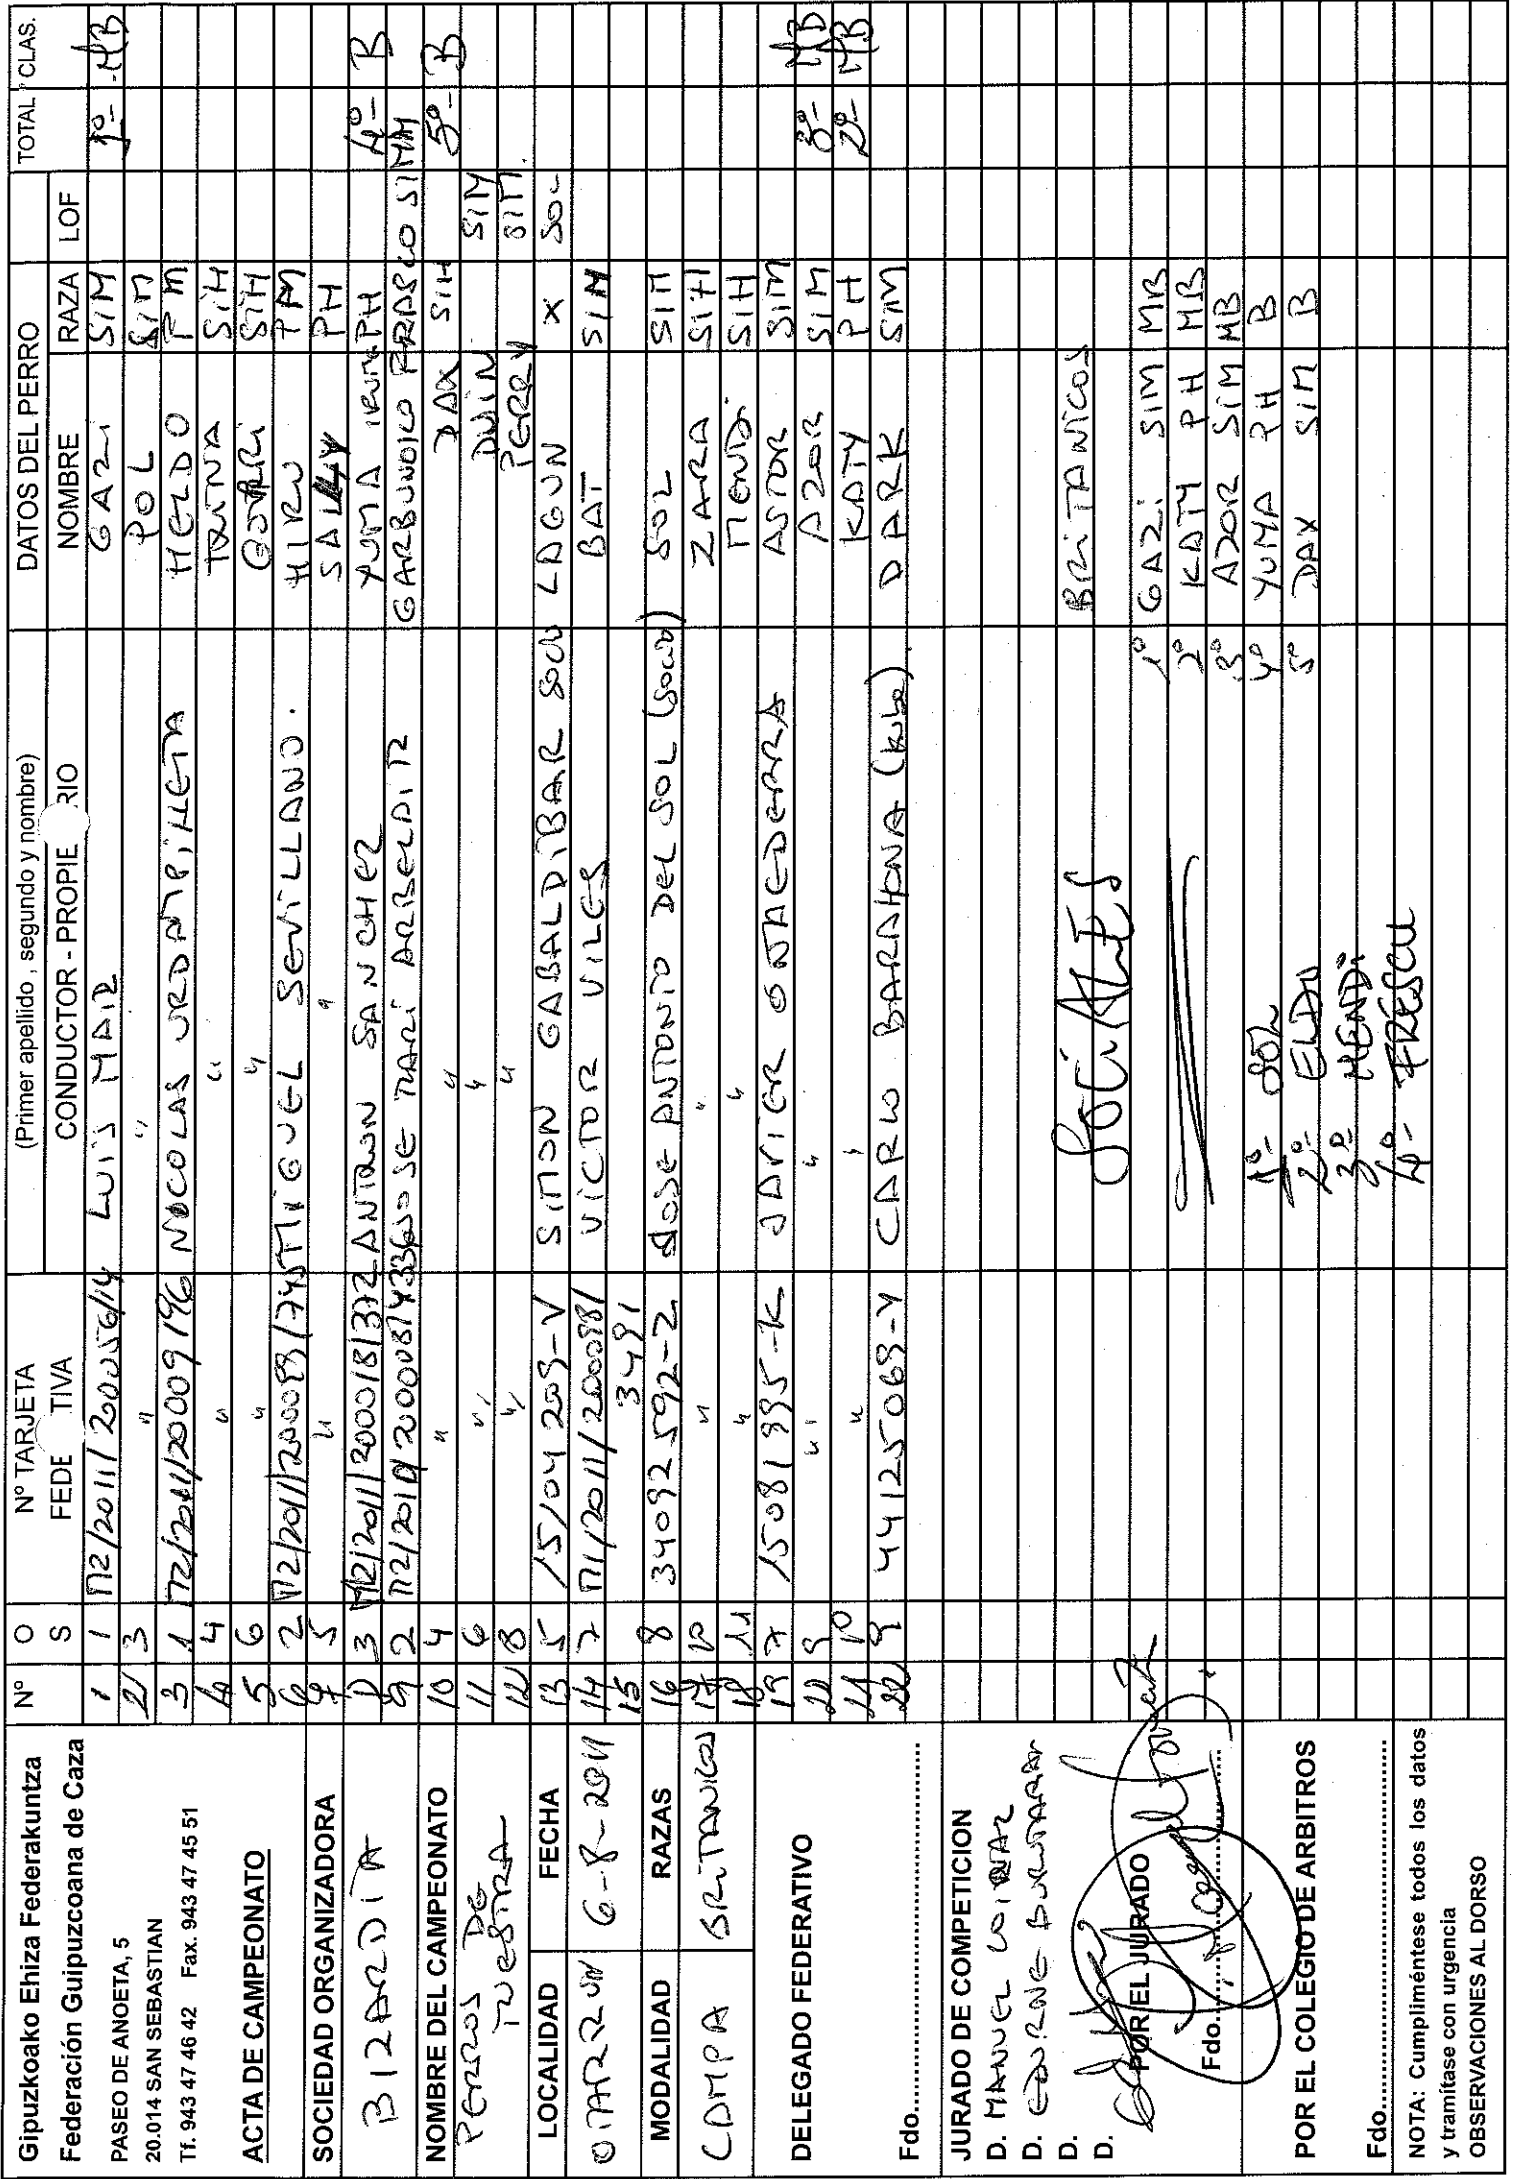 Gipuzkoako Ehiza Federakuntza
Federación Guipuzcoana de Caza
PASEO DE ANOETA, 5
20.014 SAN SEBASTIAN
Tf. 943 47 46 42 Fax. 943 47 45 51
ACTA DE CAMPEONATO
SOCIEDAD ORGANIZADORA
BIZARDIA
NOMBRE DEL CAMPEONATO
PERROS DE
MUESTRA
LOCALIDAD FECHA
OIARZUN 6-8-2011
MODALIDAD RAZAS
CAMPA BRITANICOS
DELEGADO FEDERATIVO
Fdo.
JURADO DE COMPETICION
D. MANUEL
D. EDURNE
D.
D.
POR EL JURADO
Fdo.
POR EL COLEGIO DE ARBITROS
Fdo.
NOTA: Cumpliméntese todos los datos
y tramítase con urgencia
OBSERVACIONES AL DORSO
Nº O S Nº TARJETA FEDE TIVA (Primer apellido, segundo y nombre) CONDUCTOR - PROPIE RIO DATOS DEL PERRO NOMBRE RAZA LOF TOTAL CLAS.
1 1 M2/2011/20056/14 LUIS MAIZ GAZI SIM 1º- MB
2 3 " " POL SIM
3 1 M2/2011/2009196 NICOLAS URDAMPILLETA HELDO PM
4 4 " " TXINA SIH
5 6 " " GORRI SIH
6 2 M2/2011/200089/745 MIGUEL SEVILLANO. HIRU PM
7 5 " " SALLY PH
8 3 M2/2011/200018/372 ANTXON SANCHEZ YUMA PH 4º- B
9 2 JOSE MARI ARBELAITZ GARBUNDIKO FRASCO SIMM
10 4 " " DAX SIH 5º- B
11 6 " " SIM
12 8 " " PERRY SIM.
13 5 15/04209-V SIMON GABALDIBAR LAGUN X SOC
14 7 M1/2011/200981 VICTOR VILES BAT SIM
15 3491
16 8 34092592-Z JOSE ANTONIO DEL SOL (socio) SOL SIM
17 10 " " ZARA SIH
18 11 " " MENDI SIH
19 7 15081995-K JAVIER OÑAEDERRA ASTOR SIM
20 9 " " AZOR SIM 3º- MB
21 10 " " KATY PH 2º- MB
22 9 44125069-Y CARLO BARAHONA DARK SIM
BRITANICOS
1º GAZI SIM MB
2º KATY PH MB
3º AZOR SIM MB
4º YUMA PH B
5º DAX SIM B
SOCIALES
1º- SOL
2º- ELDO
3º- MENDI
4º-